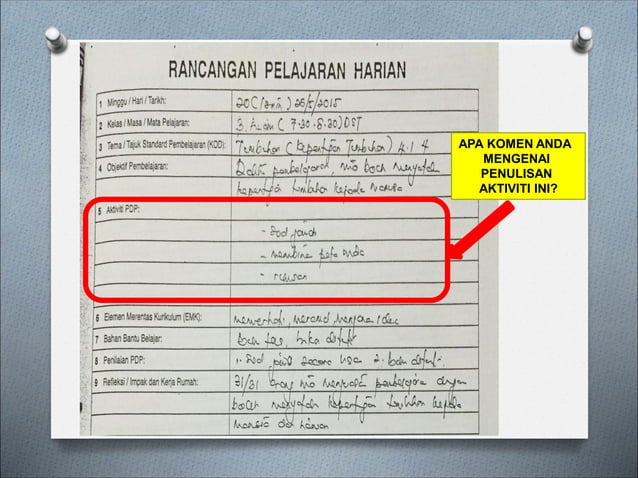 RANCANGAN PELAJARAN HARIAN
1 Minggu / Hari / Tarikh: 20 (Isnin) 25/5/2015
2 Kelas / Masa / Mata Pelajaran: 3 (7.30-8.30) DST
3 Tema / Tajuk Standard Pembelajaran (KOD): Tumbuhan (Kepentingan Tumbuhan) 4.1.4
4 Objektif Pembelajaran: murid boleh menyatakan
kepentingan tumbuhan kepada manusia
5 Aktiviti PDP:
- Soal jawab
- membina peta minda
- rumusan
6 Elemen Merentas Kurikulum (EMK): menjana idea
7 Bahan Bantu Belajar: buku
8 Penilaian PDP: 1. Soal jawab secara lisan 2.
9 Refleksi / Impak dan Kerja Rumah: 31/31 orang
boleh menyatakan kepentingan tumbuhan kepada
manusia dan haiwan
APA KOMEN ANDA
MENGENAI
PENULISAN
AKTIVITI INI?